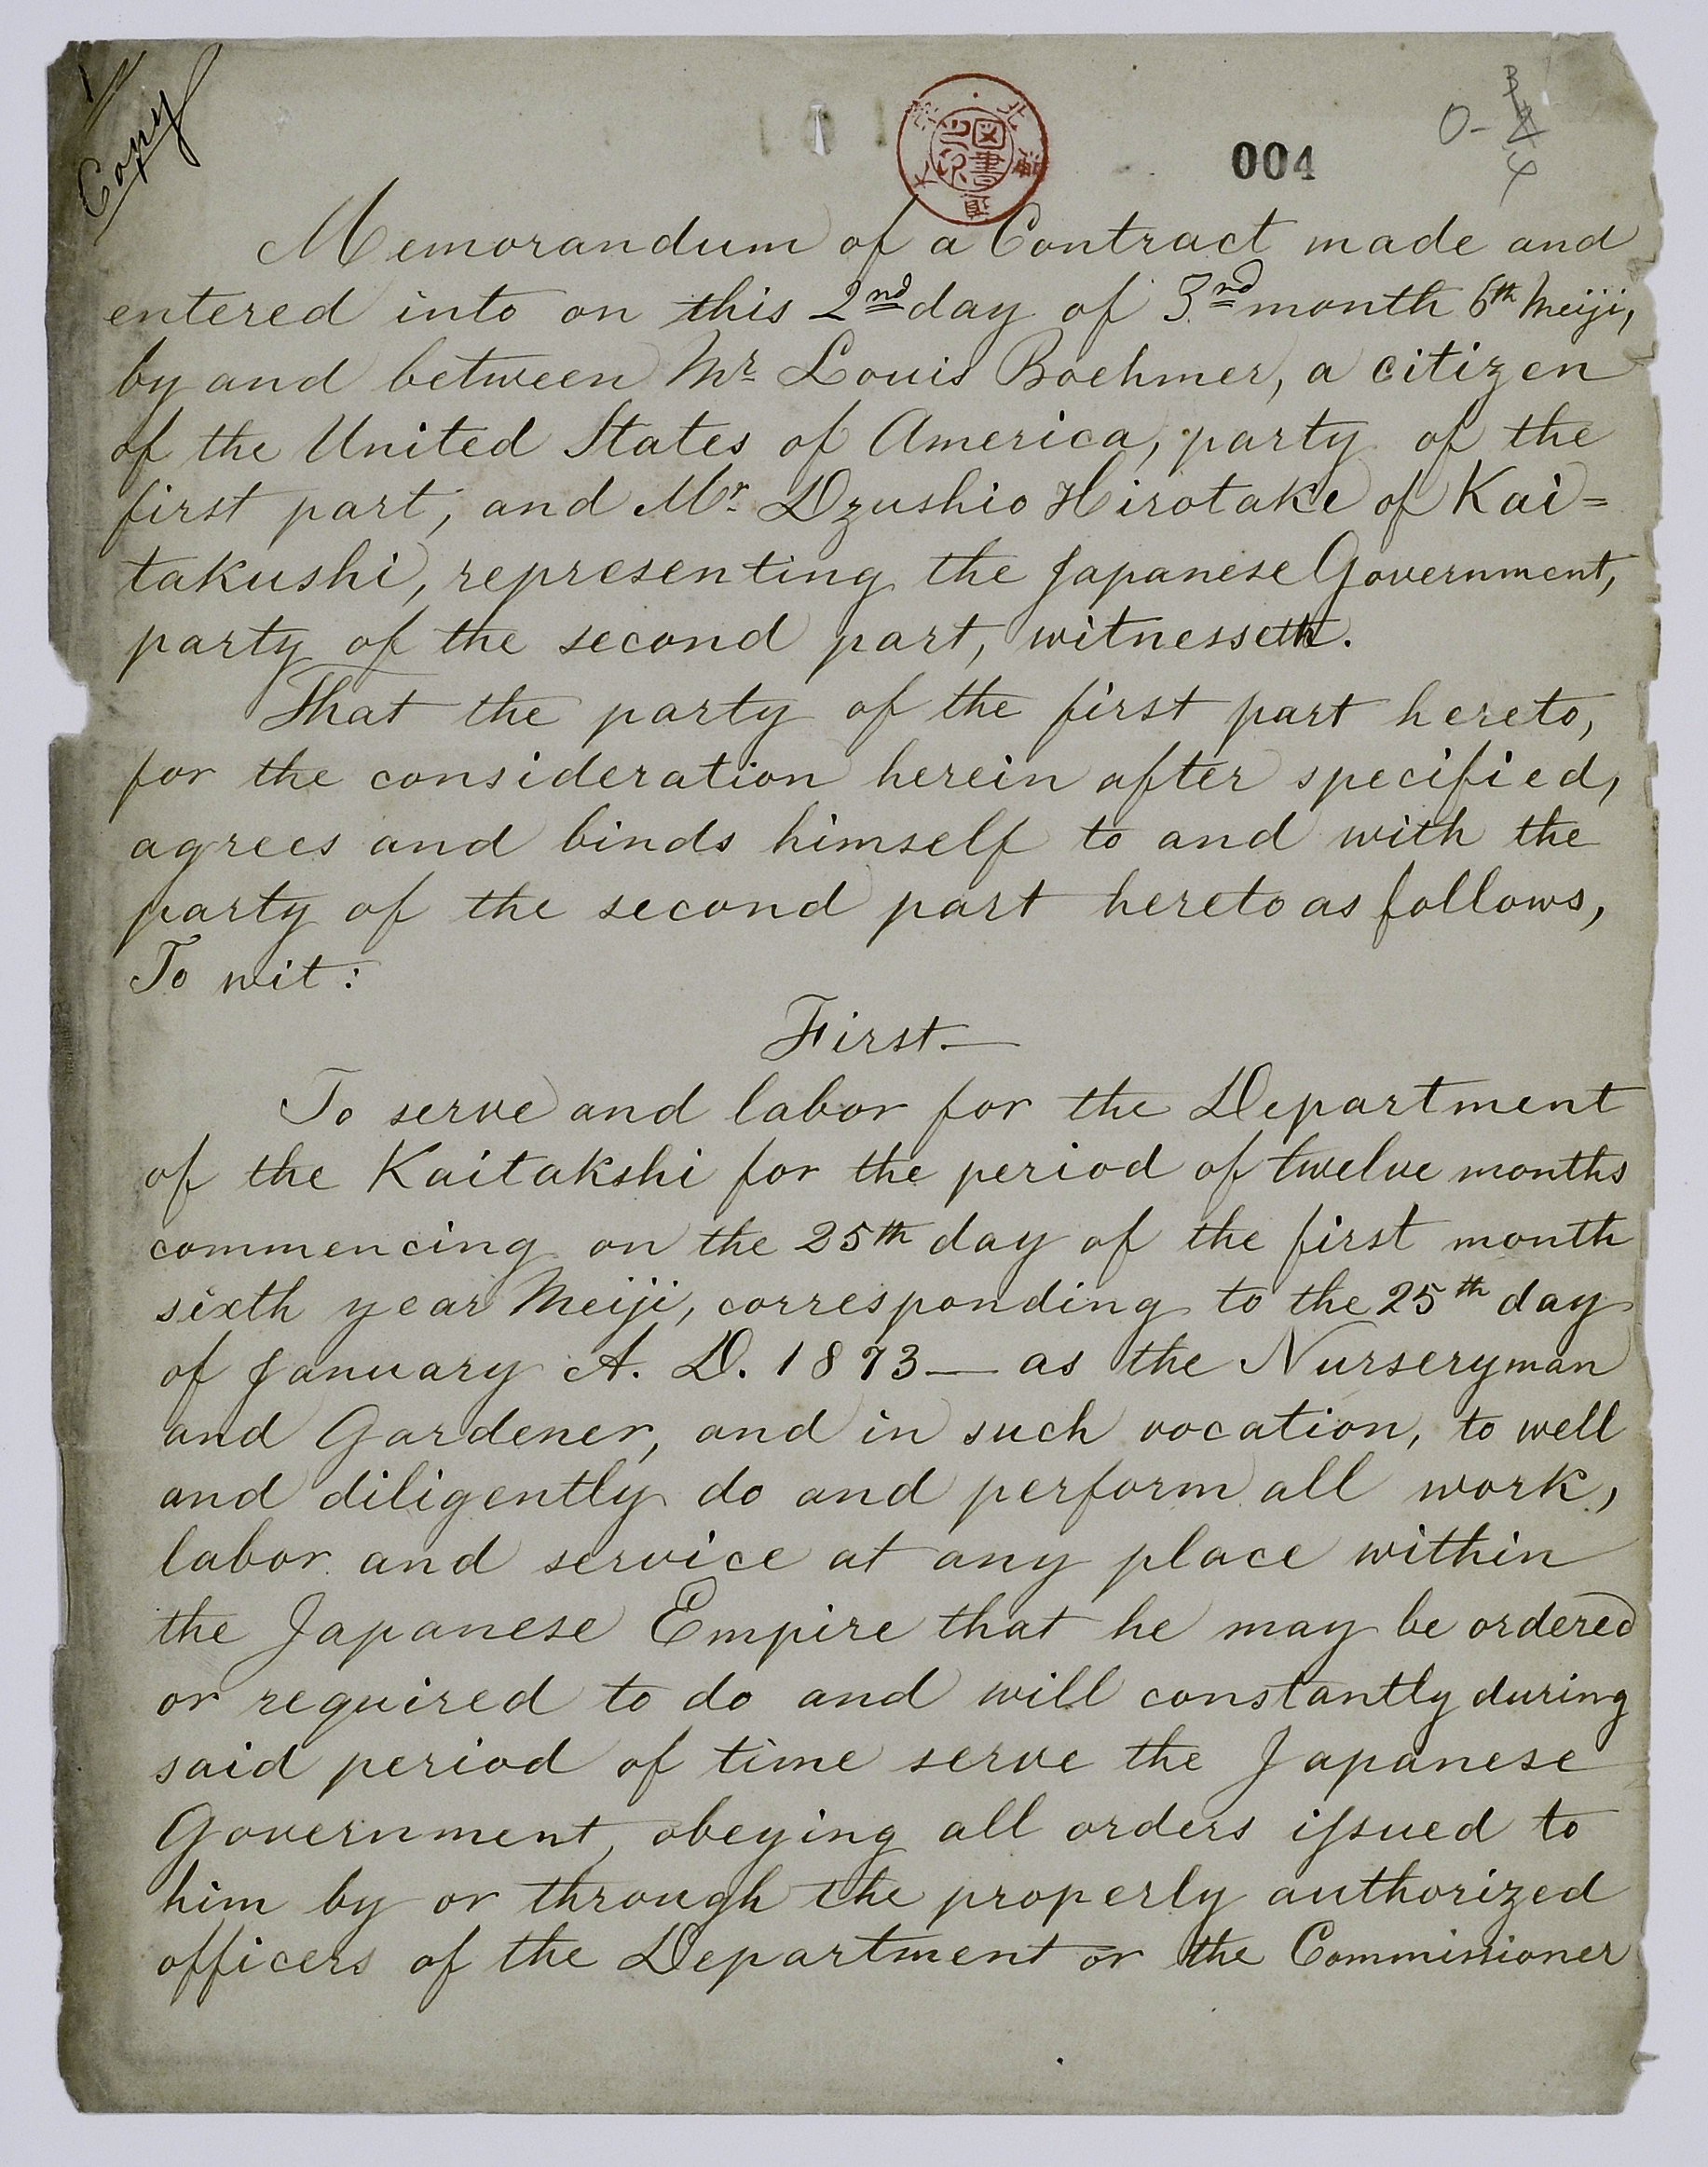 1
Copy
北海道大学
図書
004
0-
Memorandum of a Contract made and
entered into on this 2nd day of 3nd month 6th Meiji,
by and between Mr Louis Boehmer, a citizen
of the United States of America, party of the
first part, and Mr. Dzushio Hirotake of Kai=
takushi, representing the Japanese Government,
party of the second part, witnesseth.
That the party of the first part hereto,
for the consideration herein after specified,
agrees and binds himself to and with the
party of the second part hereto as follows,
To wit:
First—
To serve and labor for the Department
of the Kaitakshi for the period of twelve months
commencing on the 25th day of the first month
sixth year Meiji, corresponding to the 25th day
of January A. D. 1873— as the Nurseryman
and Gardener, and in such vocation, to well
and diligently do and perform all work,
labor and service at any place within
the Japanese Empire that he may be ordered
or required to do and will constantly during
said period of time serve the Japanese
Government, obeying all orders issued to
him by or through the properly authorized
officers of the Department or the Commissioner